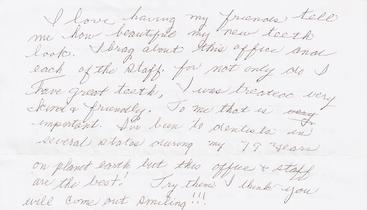 I love having my friends tell
me how beautiful my new teeth
look. I brag about this office and
each of the staff, for not only do I
have great teeth, I was treated very
kind & friendly. To me that is very
important. I've been to dentists in
several states during my 79 years
on planet earth but this office & staff
are the best! Try them I think you
will come out smiling!!!